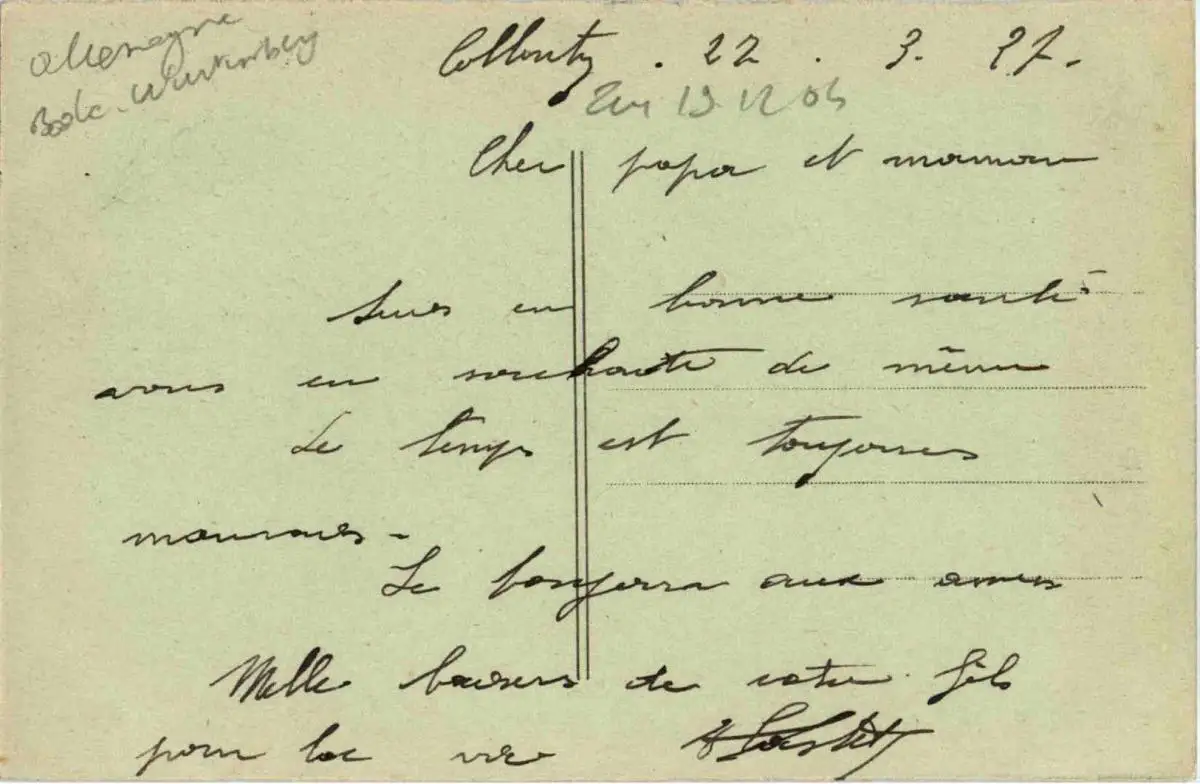 Allemagne
Bade-Wurtemberg
22 . 3. 27.
Cher papa et maman
Suis en bonne santé
vous en souhaite de même
Le temps est toujours
mauvais -
Le bonjour aux amis
Mille baisers de votre fils
pour la vie